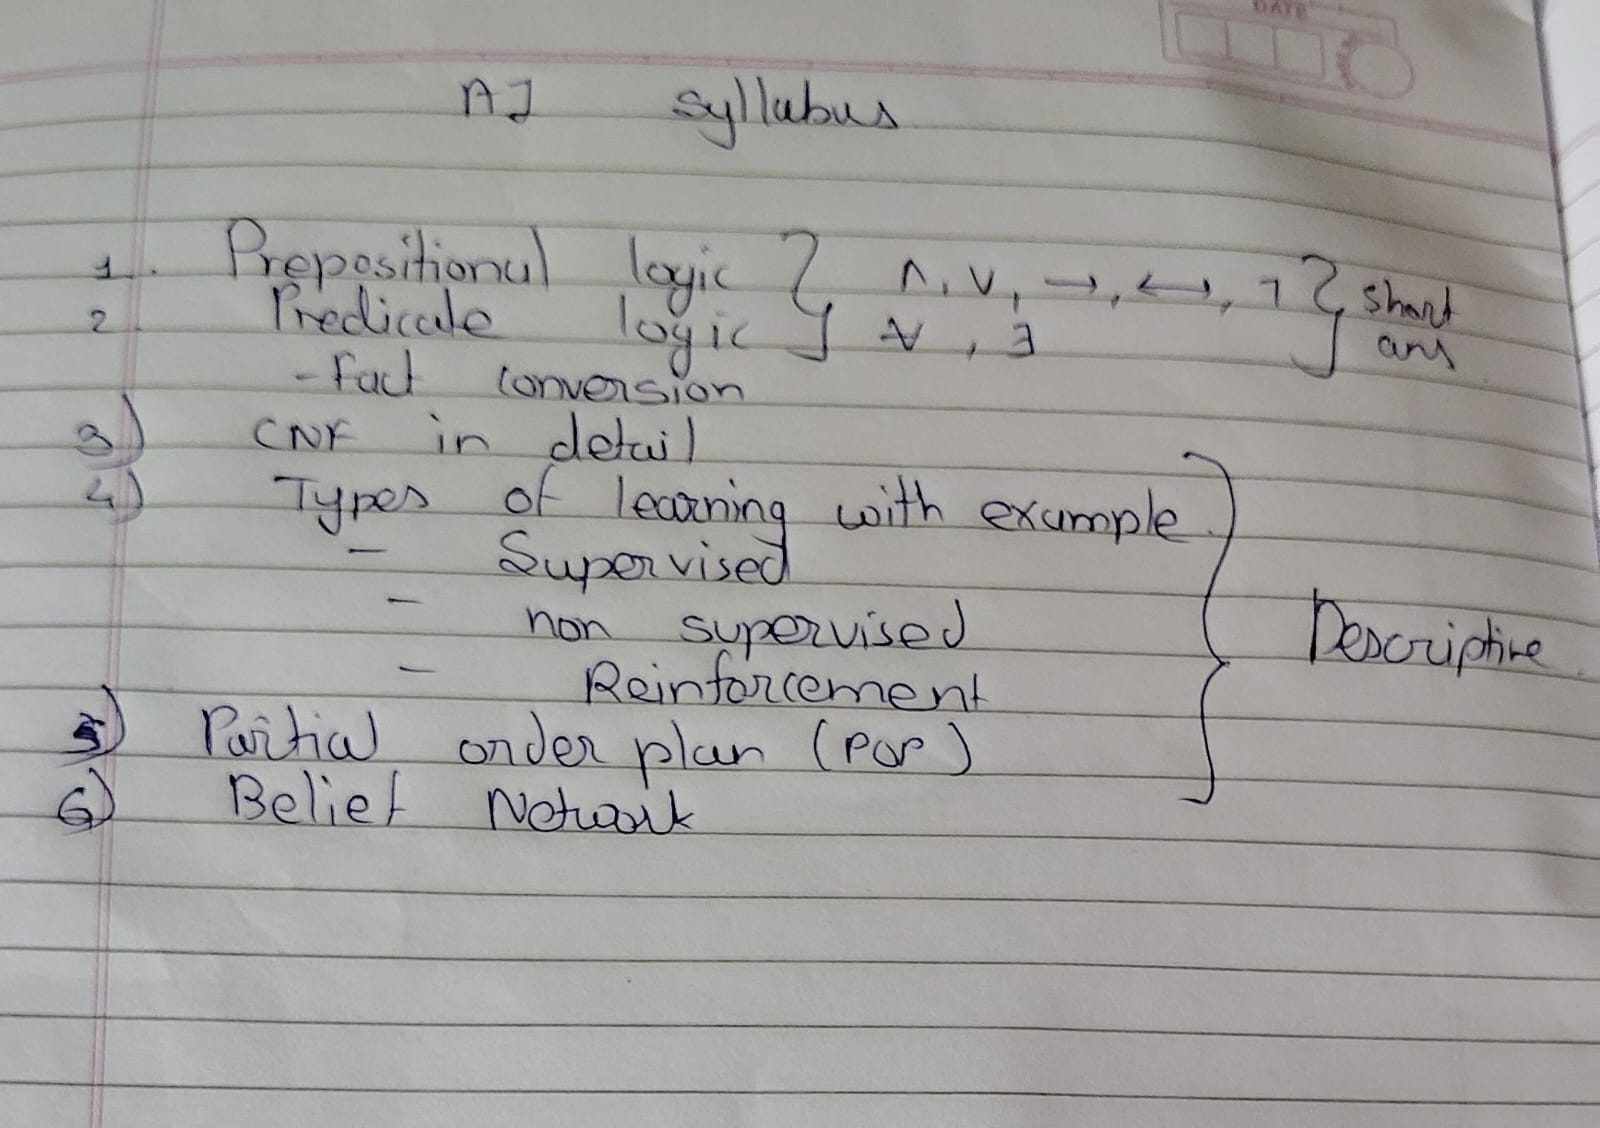 DATE
AI syllabus
1. Prepositional logic } ∧, ∨, →, ↔, ¬ } short
2. Predicate logic } ∀, ∃ ans
- Fact conversion
3) CNF in detail
4) Types of learning with example
- Supervised
- non supervised
- Reinforcement
Descriptive
5) Partial order plan (POP)
6) Belief Network